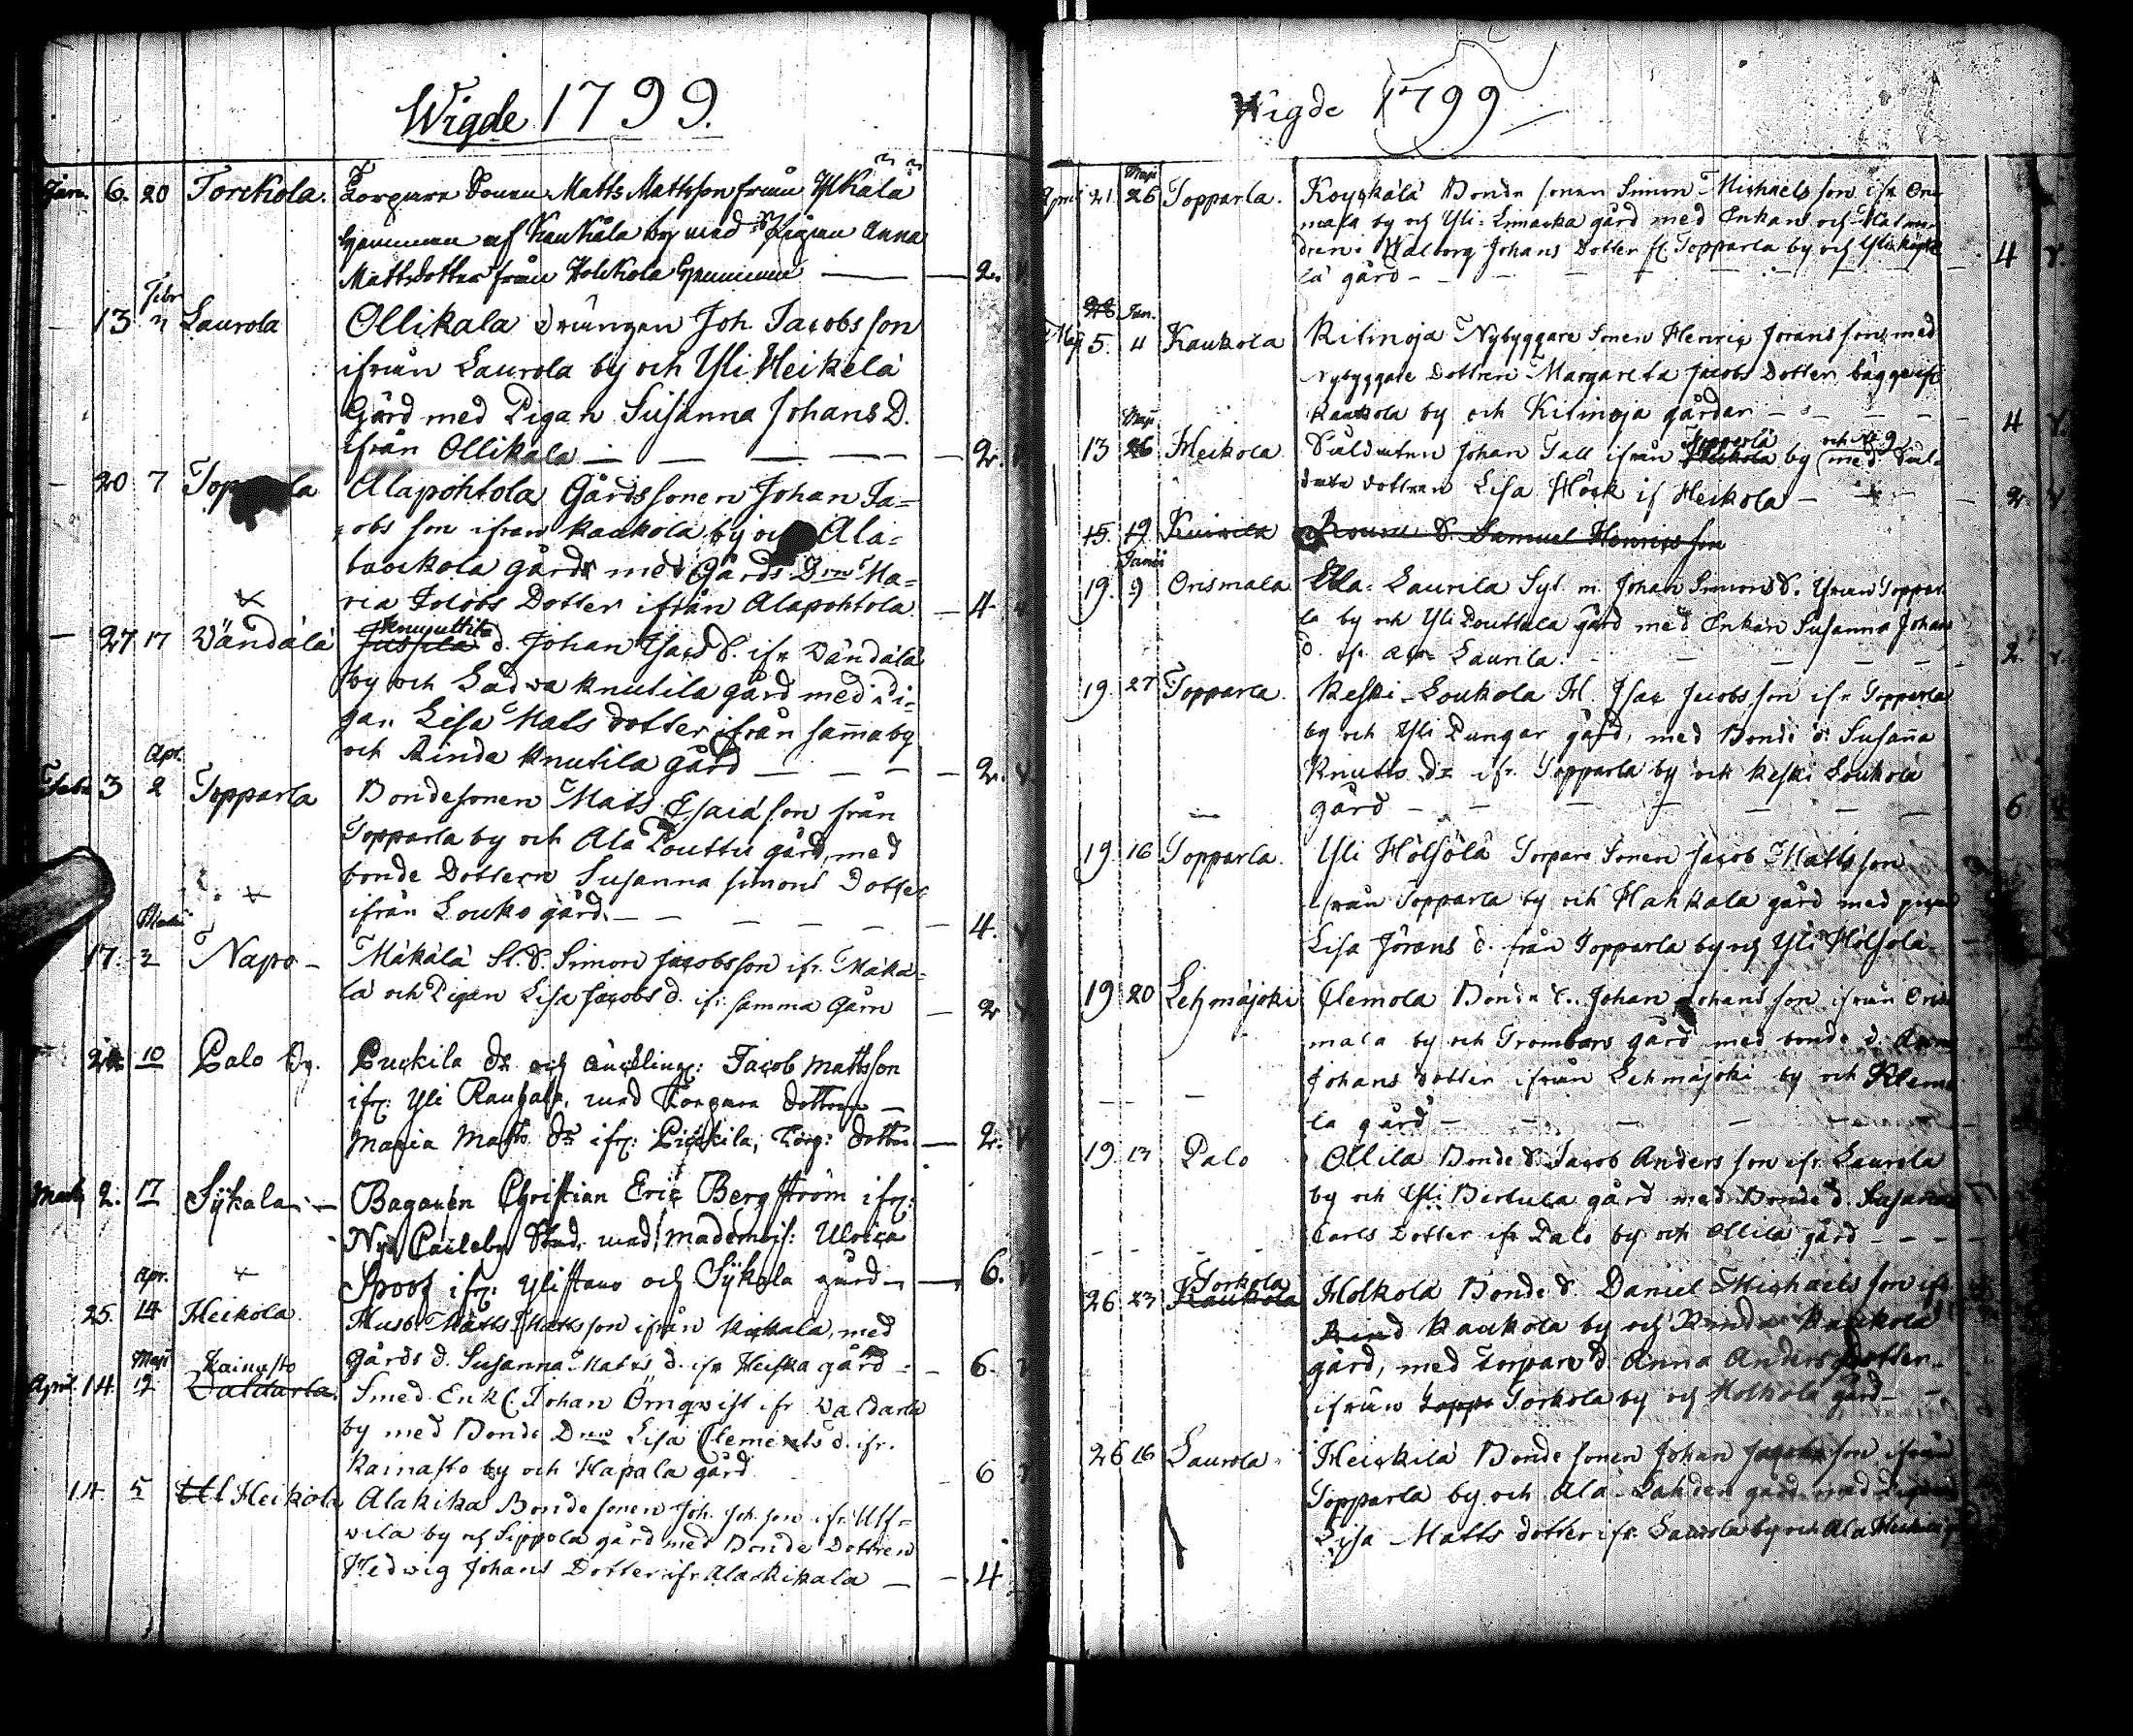 Wigde 1799.
Jan. 6. 20 Torckola. Torpare Sonen Matts Mattsson från Ylkälä
hemman af Kaukåla by med Pigan Anna
Mattsdotter från Holckola Hemman — — 2.
Febr
— 13 Laurola Ollikala drängen Joh. Jacobs son
ifrån Laurola by och Yli Heikelä
Gård med Pigan Susanna Johans D.
ifrån Ollikala — — — — 2.
— 20 7 Alapohtola Gårdssonen Johan Ja=
=obs son ifrån kaukola by och Ala=
gårds med Gårds Dren Ma=
ria Jacobs Dotter ifrån Alapohtola — 4.
— 27 17 Wändälä Jussila Knuuttila d. Johan Isacs S. ifr Wändälä
by och Ladwa knutila gård med Pi=
gan Lisa Mats dotter ifrån samma by
och Rinda Knutila gård — — — 2. v
Apr.
Febr 3 2 Topparla Bondesonen Mats Esaiä son från
Topparla by och Ala Pouttu gård, med
bonde Dottern Susanna simons Dotter
ifrån Louko gård. — — — — 4. v
17. 3 Napo — Mäkälä Sl. S. Simon Jacobsson ifr. Mäkä=
lä och Pigan Lisa Jacobs d. ifr: samma Gård — 2 v
24 10 Palo by. Puckila Dr och Jacob Mattsson
ifr: Yli Rauhala, med Torpare dottren —
Maria Matts Dr ifr: Pickila, Torp: dotter — 2. v
Marti 2. 17 Sÿkala — Bagaren Christian Eric Bergström ifr:
Ny Carleby Stad, med Mademois: Ulrica
Spoof ifr: Ylistaro och Sÿkala gård — — 6. v
Apr.
25. 14 Heikola. Husb. Matts Matts son ifrån kickala, med
Gårds d. Susanna Matts d. ifr Heikka gård — 6. v
Maji Kainasto
April 14. 12 Valdarla. Smed Enkl. Johan Örnqvist ifr Valdarla
by med Bonde Dren Lisa Clements d. ifr.
Kainasto by och Hapala gård — 6 v
14. 5 Heikola Alakika Bonde sonen Joh. Joh. son ifr. Ulf=
wila by och Sippola gård med Bonde Dottren
Hedwig Johans Dotter ifr Alakikala — — 4
Wigde 1799
Maji
April 21. 26 Topparla. Koyskälä Bonde sonen Simon Michaels son ifr Oris
mala by och Yli- Linnacka gård med Enkan och
Walborg Johans Dotter fr Topparla by och Yli Köykkä
lä gård — — — — — — 4 v.
28 Jun.
Maj 5. 11 Kaukola Kitinoja Nybyggare Sonen Henric Jorans son, med
Nybyggare Dottren Margareta Jacobs Dotter bägge ifr
Kaukola by och Kitinoja gårdar — — — — 4 v.
Maji
13 26 Heikola Soldaten Johan Tall ifrån Heikola Topparla by med Sol-
date dottren Lisa Höök if Heikola — — — 2 v
15. 19 Kuiwila Samuel Henrics son
Junii
19. 9 Orismala Ala- Laurila Syt. m. Johan Simons S. ifrån Toppar
la by och Yli Pouttula gård med Enkan Susanna Johans
d. ifr. Laurila. — — — — — 2. v.
19. 27 Topparla. Keski-Loukola M. Isac Jacobs son ifr Topparla
by och Yli Pungar gård, med Bonde d: Susanna
Knuts Dr ifr. Topparla by och keski Loukola
gård — — — — — — 6
19. 16 Topparla. Yli Hölsölä Torpare Sonen Jacob Matts son
ifrån Topparla by och Hahkala gård med pigan
Lisa Jörans d. från Topparla by och Yli Hölsölä
19 20 Lehmäjoki Clemola Bonde S. Johan Johans son ifrån Oris
mala by och Trombars gård med bonde d. Anna
Johans dotter ifrån Lehmäjoki by och Klemo
la gård — — — — —
19. 13 Palo Ollila Bonde S. Jacob Anders son ifr. Laurola
by och Yli Bertula gård med Bonde d. Susanna
Carls Dotter ifr Palo by och Ollila gård — — —
26. 23 Kaukola Torkola Holkola Bonde S. Daniel Michaels son ifr
Rind Kaukola by och Rinda Kaukola
gård, med Torpare d. Anna Anders dotter
ifrån Toppa Torkola by och Holkola gård —
26 16 Laurola. Heickilä Bonde sonen Johan Jacobs son ifrån
Topparla by och Ala-Lahden gård med Pigan
Lisa Matts dotter ifr. Laurola by och Ala Heikila